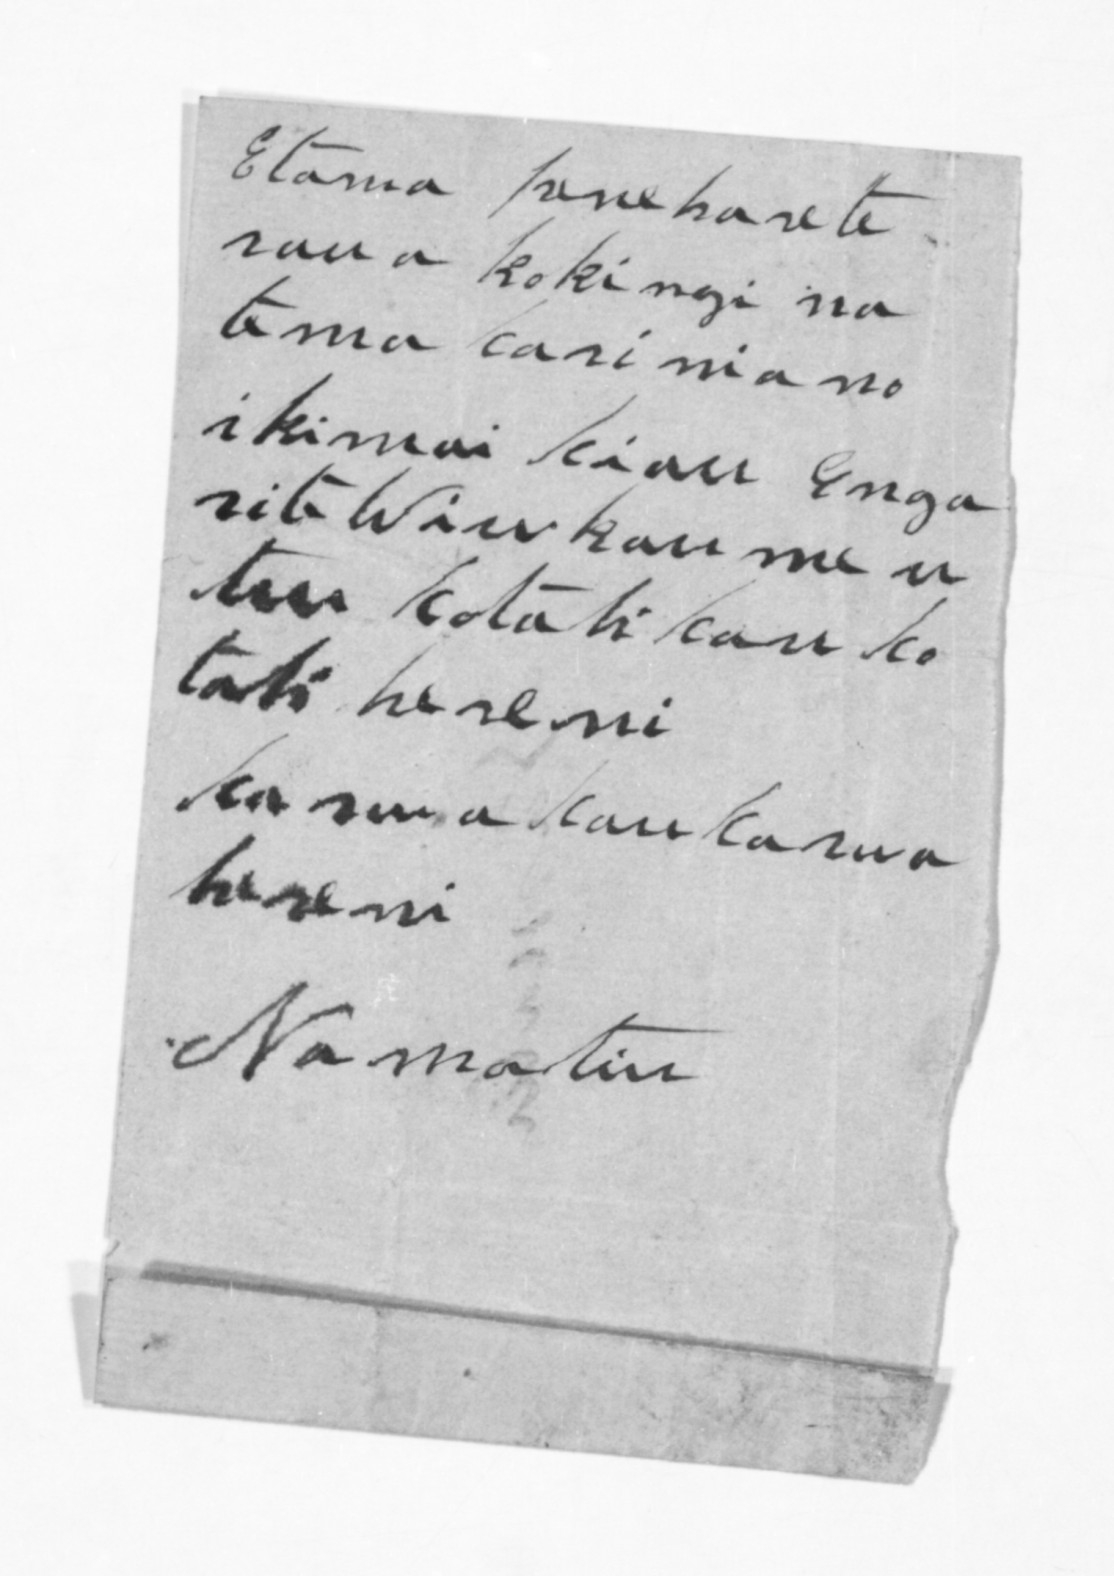 Etama penehare te
raua ko kingi na
te ma kari mano
i ki mai kiau Enga
rite Wiu kau me u
tuu kotahi kau ko
tahi hereni
ka rua kau ka rua
hereni
Na matiu